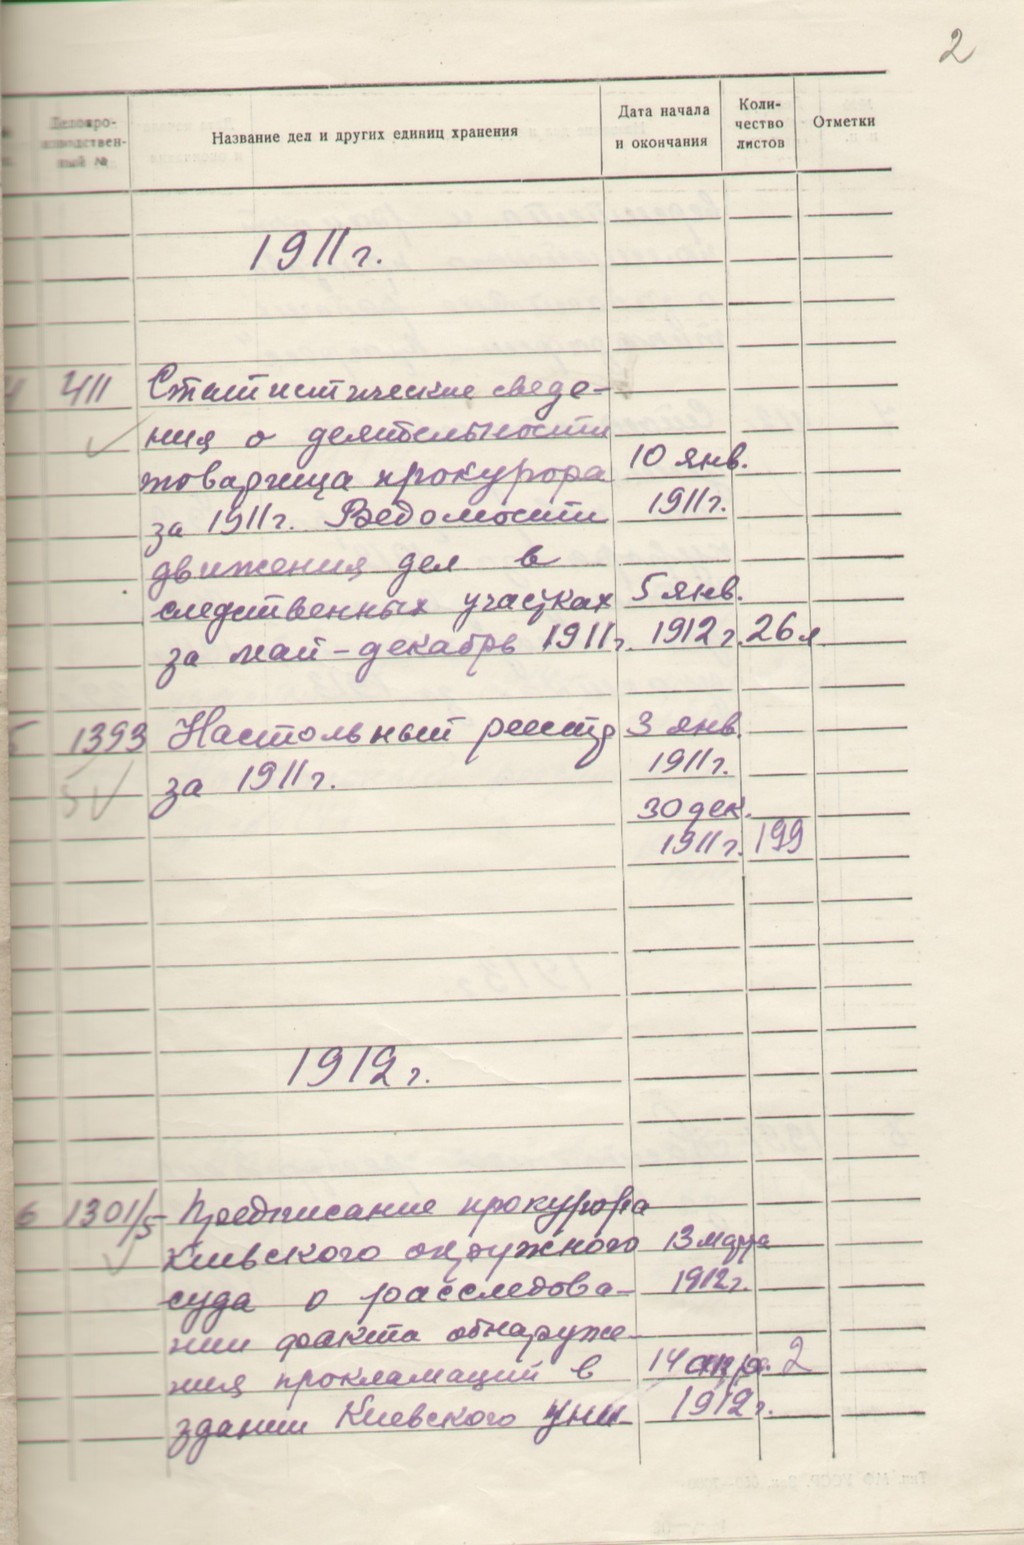 2
Делопро-
изводствен-
ный №
Название дел и других единиц хранения
Дата начала
и окончания
Коли-
чество
листов
Отметки
1911 г.
4 411 Статистические сведе-
ния о деятельности
товарища прокурора 10 янв.
за 1911 г. Ведомости 1911 г.
движения дел в
следственных участках 5 янв.
за май - декабрь 1911 г. 1912 г. 26 л
5 1393 Настольный реестр 3 янв.
за 1911 г. 1911 г.
30 дек.
1911 г. 199
1912 г.
6 1301/5 Предписание прокурора
Киевского окружного 13 марта
суда о расследова- 1912 г.
нии факта обнаруже-
ния прокламаций в 14 апр. 2
здании Киевского уни- 1912 г.